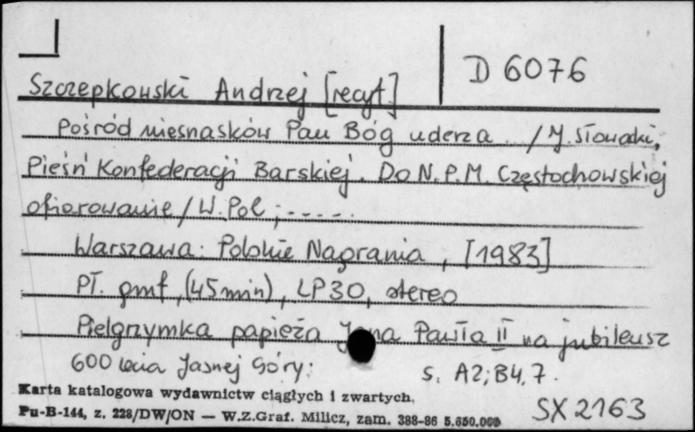 D 6076
Szczepkowski Andrzej [recyt.]
Pośród niesnasków Pan Bóg uderza... / J. Słowacki;
Pieśń Konfederacji Barskiej. Do N.P.M. Częstochowskiej
ofiarowanie / W. Pol; -----.
Warszawa: Polskie Nagrania, [1983]
Pł. gmf, (45 min), LP30, stereo
Pielgrzymka papieża Jana Pawła II na jubileusz
600 lecia Jasnej Góry:
s. A2; B4, 7.
Karta katalogowa wydawnictw ciągłych i zwartych.
Pu-B-144, z. 228/DW/ON — W.Z.Graf. Milicz, zam. 388-86 5.650.000
SX 2163